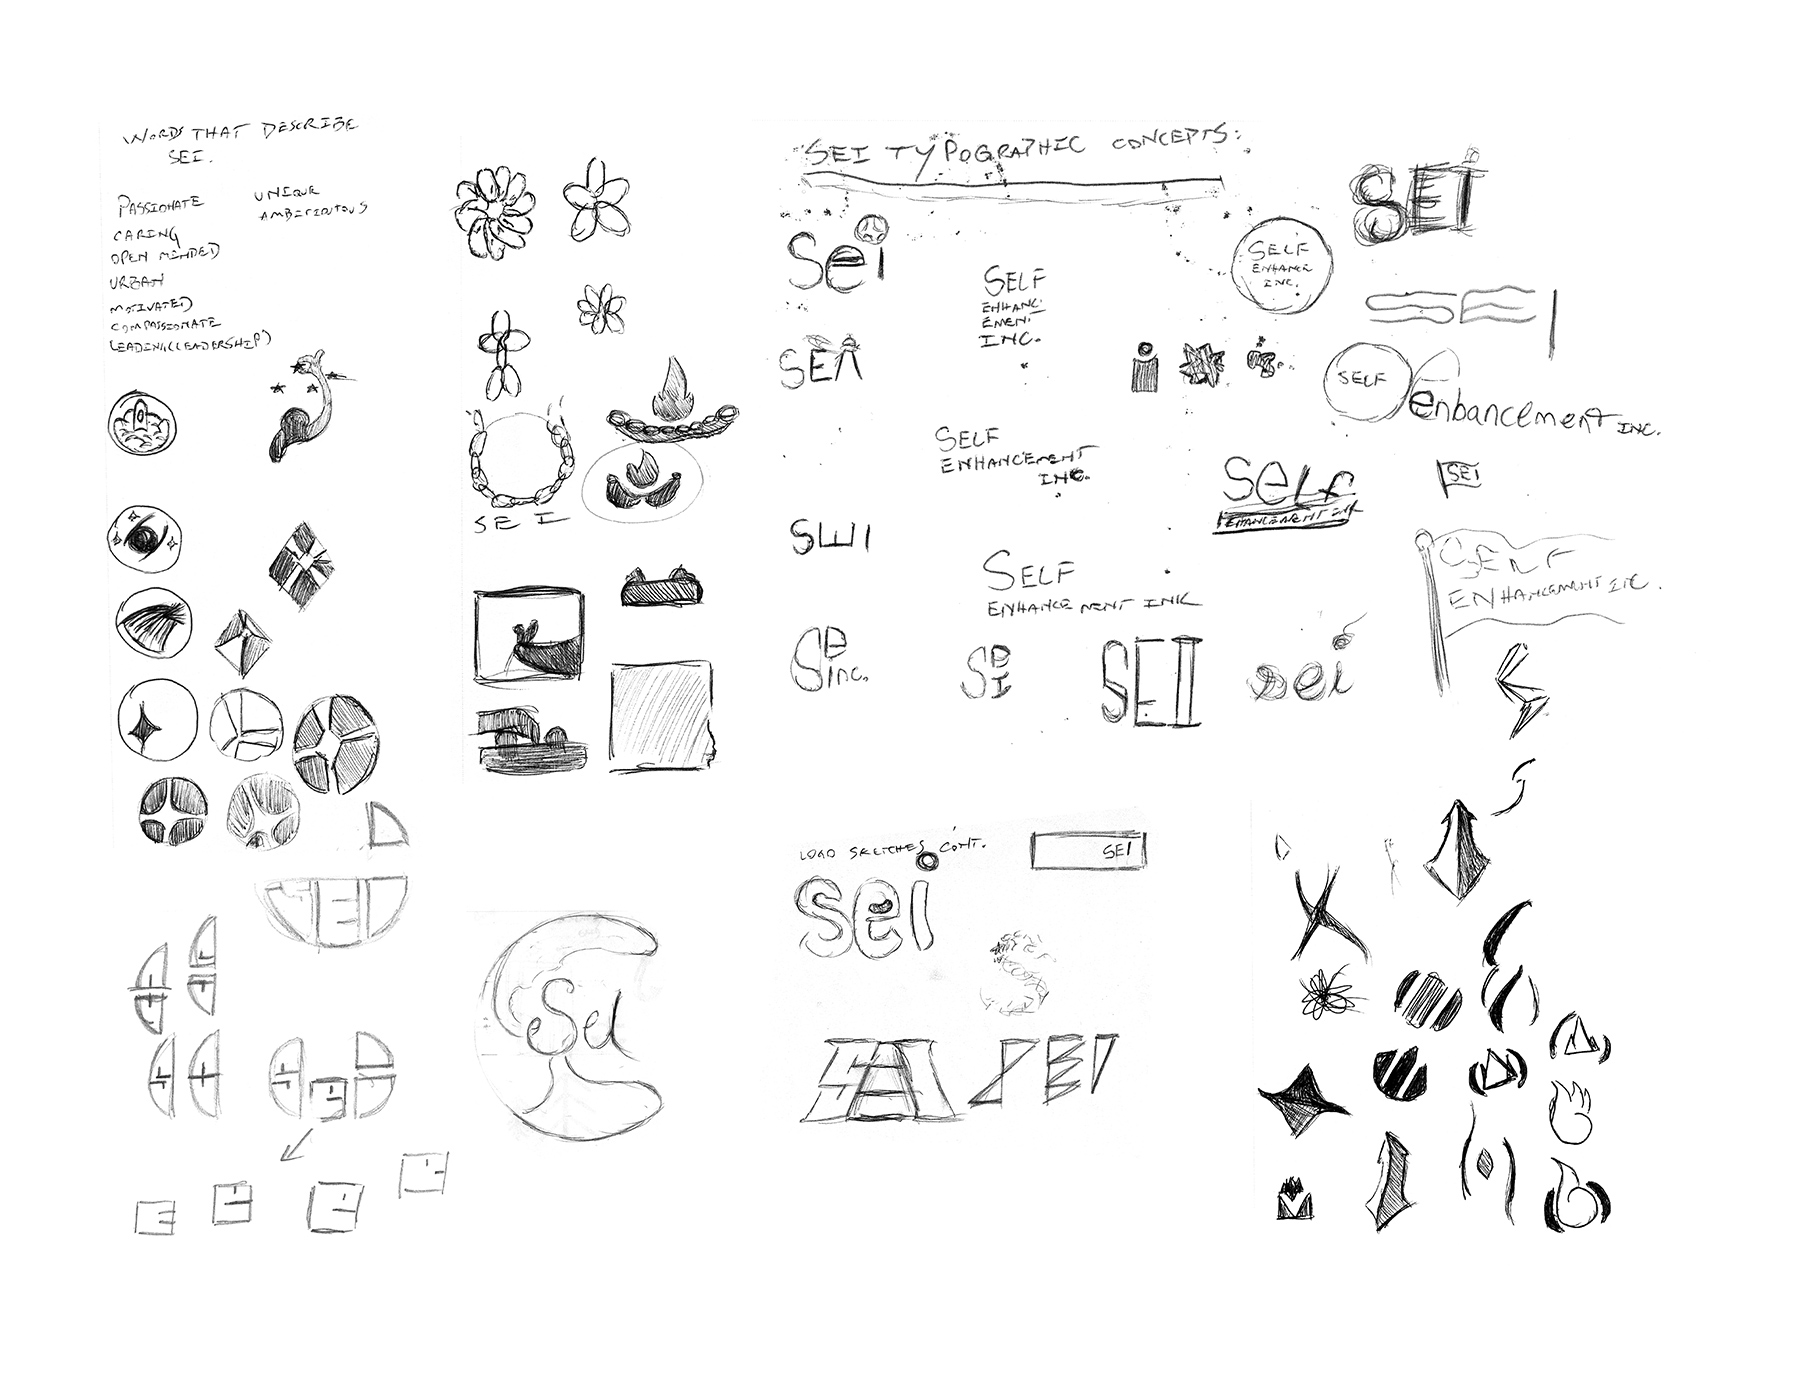 WORDS THAT DESCRIBE
SEI.
PASSIONATE
CARING
OPEN MINDED
URBAN
MOTIVATED
COMPASSIONATE
LEADING(LEADERSHIP)
UNIQUE
SEI
SEI
sei
SEI TYPOGRAPHIC CONCEPTS:
sei
SELF
ENHANC-
EMENT
INC.
SELF
ENHANCE
INC.
SEI
SEI
SEI
SELF
ENHANCEMENT
INC.
SELF
enhancement INC.
SELF
ENHANCEMENT INK
SEI
SEI
SELF
ENHANCEMENT INK
SELF
ENHANCEMENT INC.
SE
inc.
SE
I
SEI
sei
LOGO SKETCHES CONT.
SEI
sei
SEI
SEI